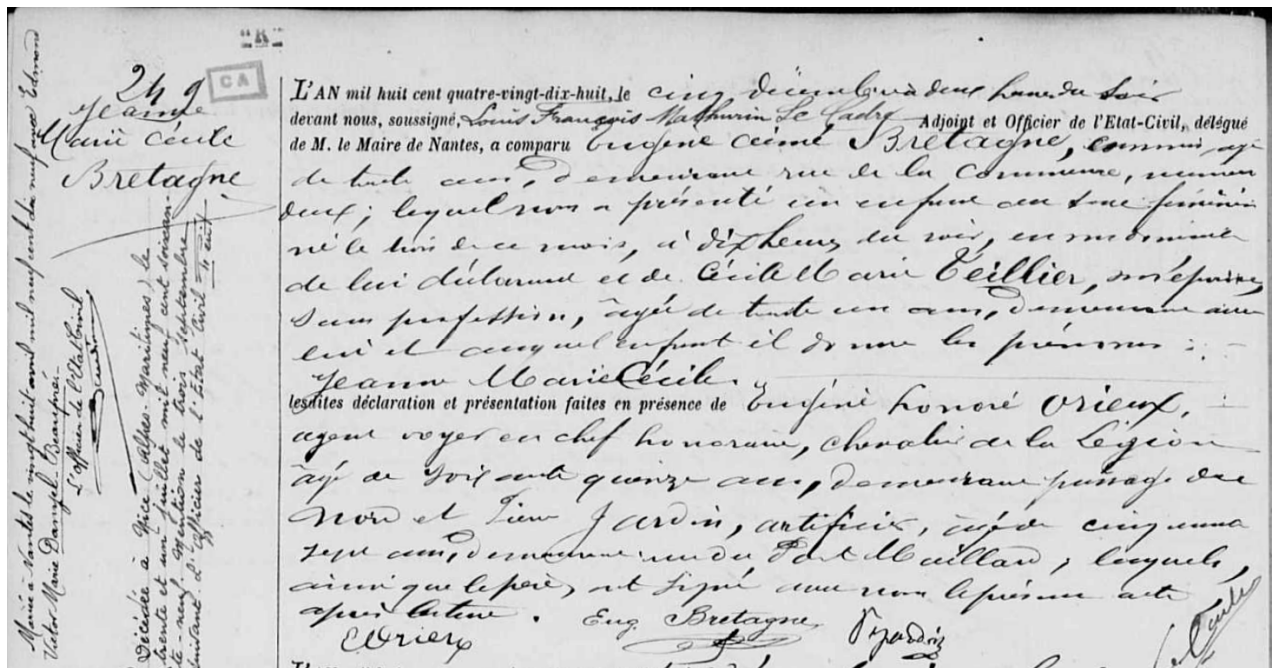 "R"
CA
249
Jeanne
Marie Cécile
Bretagne
Marié à Nantes le vingt huit avril mil neuf cent dix neuf avec Edmond
Victor Marie Danyel Beaupré.-
L'officier de l'Etat Civil
Décédée à Nice (Alpes-Maritimes) le
trente et un juillet mil neuf cent soixan-
te-neuf Mention le trois septembre
suivant. L'Officier de l'Etat Civil
L'AN mil huit cent quatre-vingt-dix-huit, le cinq décembre à deux heures du soir
devant nous, soussigné, Louis François Mathurin Le Cadre Adjoint et Officier de l'Etat-Civil, délégué
de M. le Maire de Nantes, a comparu Eugène Aimé Bretagne, commis, âgé
de trente ans, demeurant rue de la Commune, numéro
deux ; lequel nous a présenté un enfant du sexe féminin
né le trois de ce mois, à dix heures du soir, en sa demeure
de lui déclarant et de Cécile Marie Teillier, son épouse,
sans profession, âgée de trente un ans, demeurant avec
lui et auquel enfant il donne les prénoms :
Jeanne Marie Cécile.
lesdites déclaration et présentation faites en présence de Eugène honoré Orieux,
agent voyer en chef honoraire, chevalier de la Légion
âgé de soixante quinze ans, demeurant passage du
Nord et Pierre Jardin, artificier, âgé de cinquante
sept ans, demeurant rue du Port Maillard ; lesquels,
ainsi que le père, ont signé avec nous le présent acte
après lecture. Eug. Bretagne P. Jardin
E Orieux Le Cadre